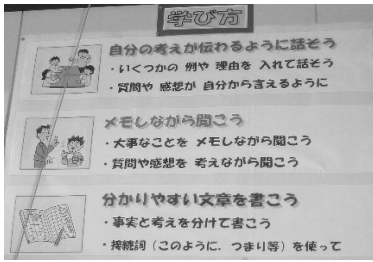 学び方
自分の考えが伝わるように話そう
・いくつかの 例や 理由を 入れて話そう
・質問や 感想が 自分から言えるように
メモしながら聞こう
・大事なことを メモしながら聞こう
・質問や感想を 考えながら聞こう
分かりやすい文章を書こう
・事実と考えを分けて書こう
・接続詞（このように、つまり等）を使って